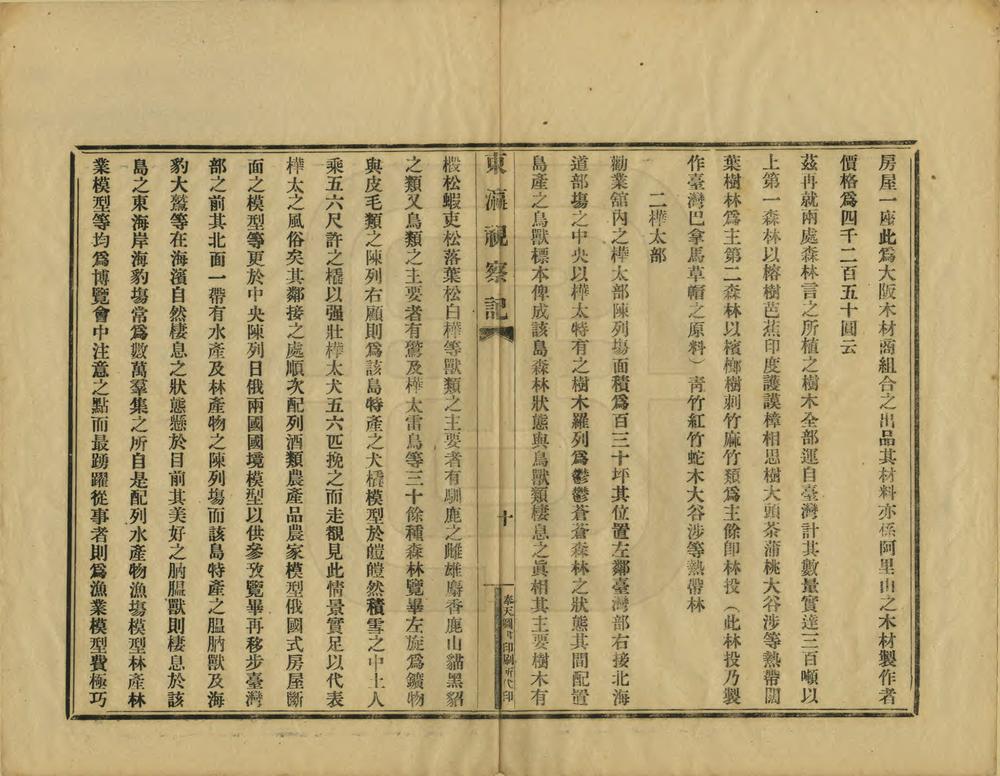 房屋一座此爲大阪木材商組合之出品其材料亦係阿里山之木材製作者
價格爲四千二百五十圓云
茲再就兩處森林言之所植之樹木全部運自臺灣計其數量實達三百噸以
上第一森林以榕樹芭蕉印度護謨樟相思樹大頭茶蒲桃大谷涉等熱帶闊
葉樹林爲主第二森林以檳榔樹刺竹麻竹類爲主餘卽林投（此林投乃製
作臺灣巴拿馬草帽之原料）靑竹紅竹蛇木大谷涉等熱帶林
二樺太部
勸業舘內之樺太部陳列塲面積爲百三十坪其位置左鄰臺灣部右接北海
道部塲之中央以樺太特有之樹木羅列爲鬱鬱蒼蒼森林之狀態其間配置
島產之鳥獸標本俾成該島森林狀態與鳥獸類棲息之眞相其主要樹木有
東瀛視察記
十
奉天關東印刷所代印
椴松蝦夷松落葉松白樺等獸類之主要者有馴鹿之雌雄麝香鹿山貓黑貂
之類又鳥類之主要者有鷲及樺太雷鳥等三十餘種森林覽畢左旋爲鑛物
與皮毛類之陳列右顧則爲該島特產之犬橇模型於皚皚然積雪之中土人
乘五六尺許之橇以强壯樺太犬五六匹挽之而走覩見此情景實足以代表
樺太之風俗矣其鄰接之處順次配列酒類農產品農家模型俄國式房屋斷
面之模型等更於中央陳列日俄兩國國境模型以供參攷覽畢再移步臺灣
部之前其北面一帶有水產及林產物之陳列塲而該島特產之膃肭獸及海
豹大鷲等在海濱自然棲息之狀態懸於目前其美好之膃肭獸則棲息於該
島之東海岸海豹塲常爲數萬羣集之所自是配列水產物漁塲模型林產林
業模型等均爲博覽會中注意之點而最踴躍從事者則爲漁業模型費極巧